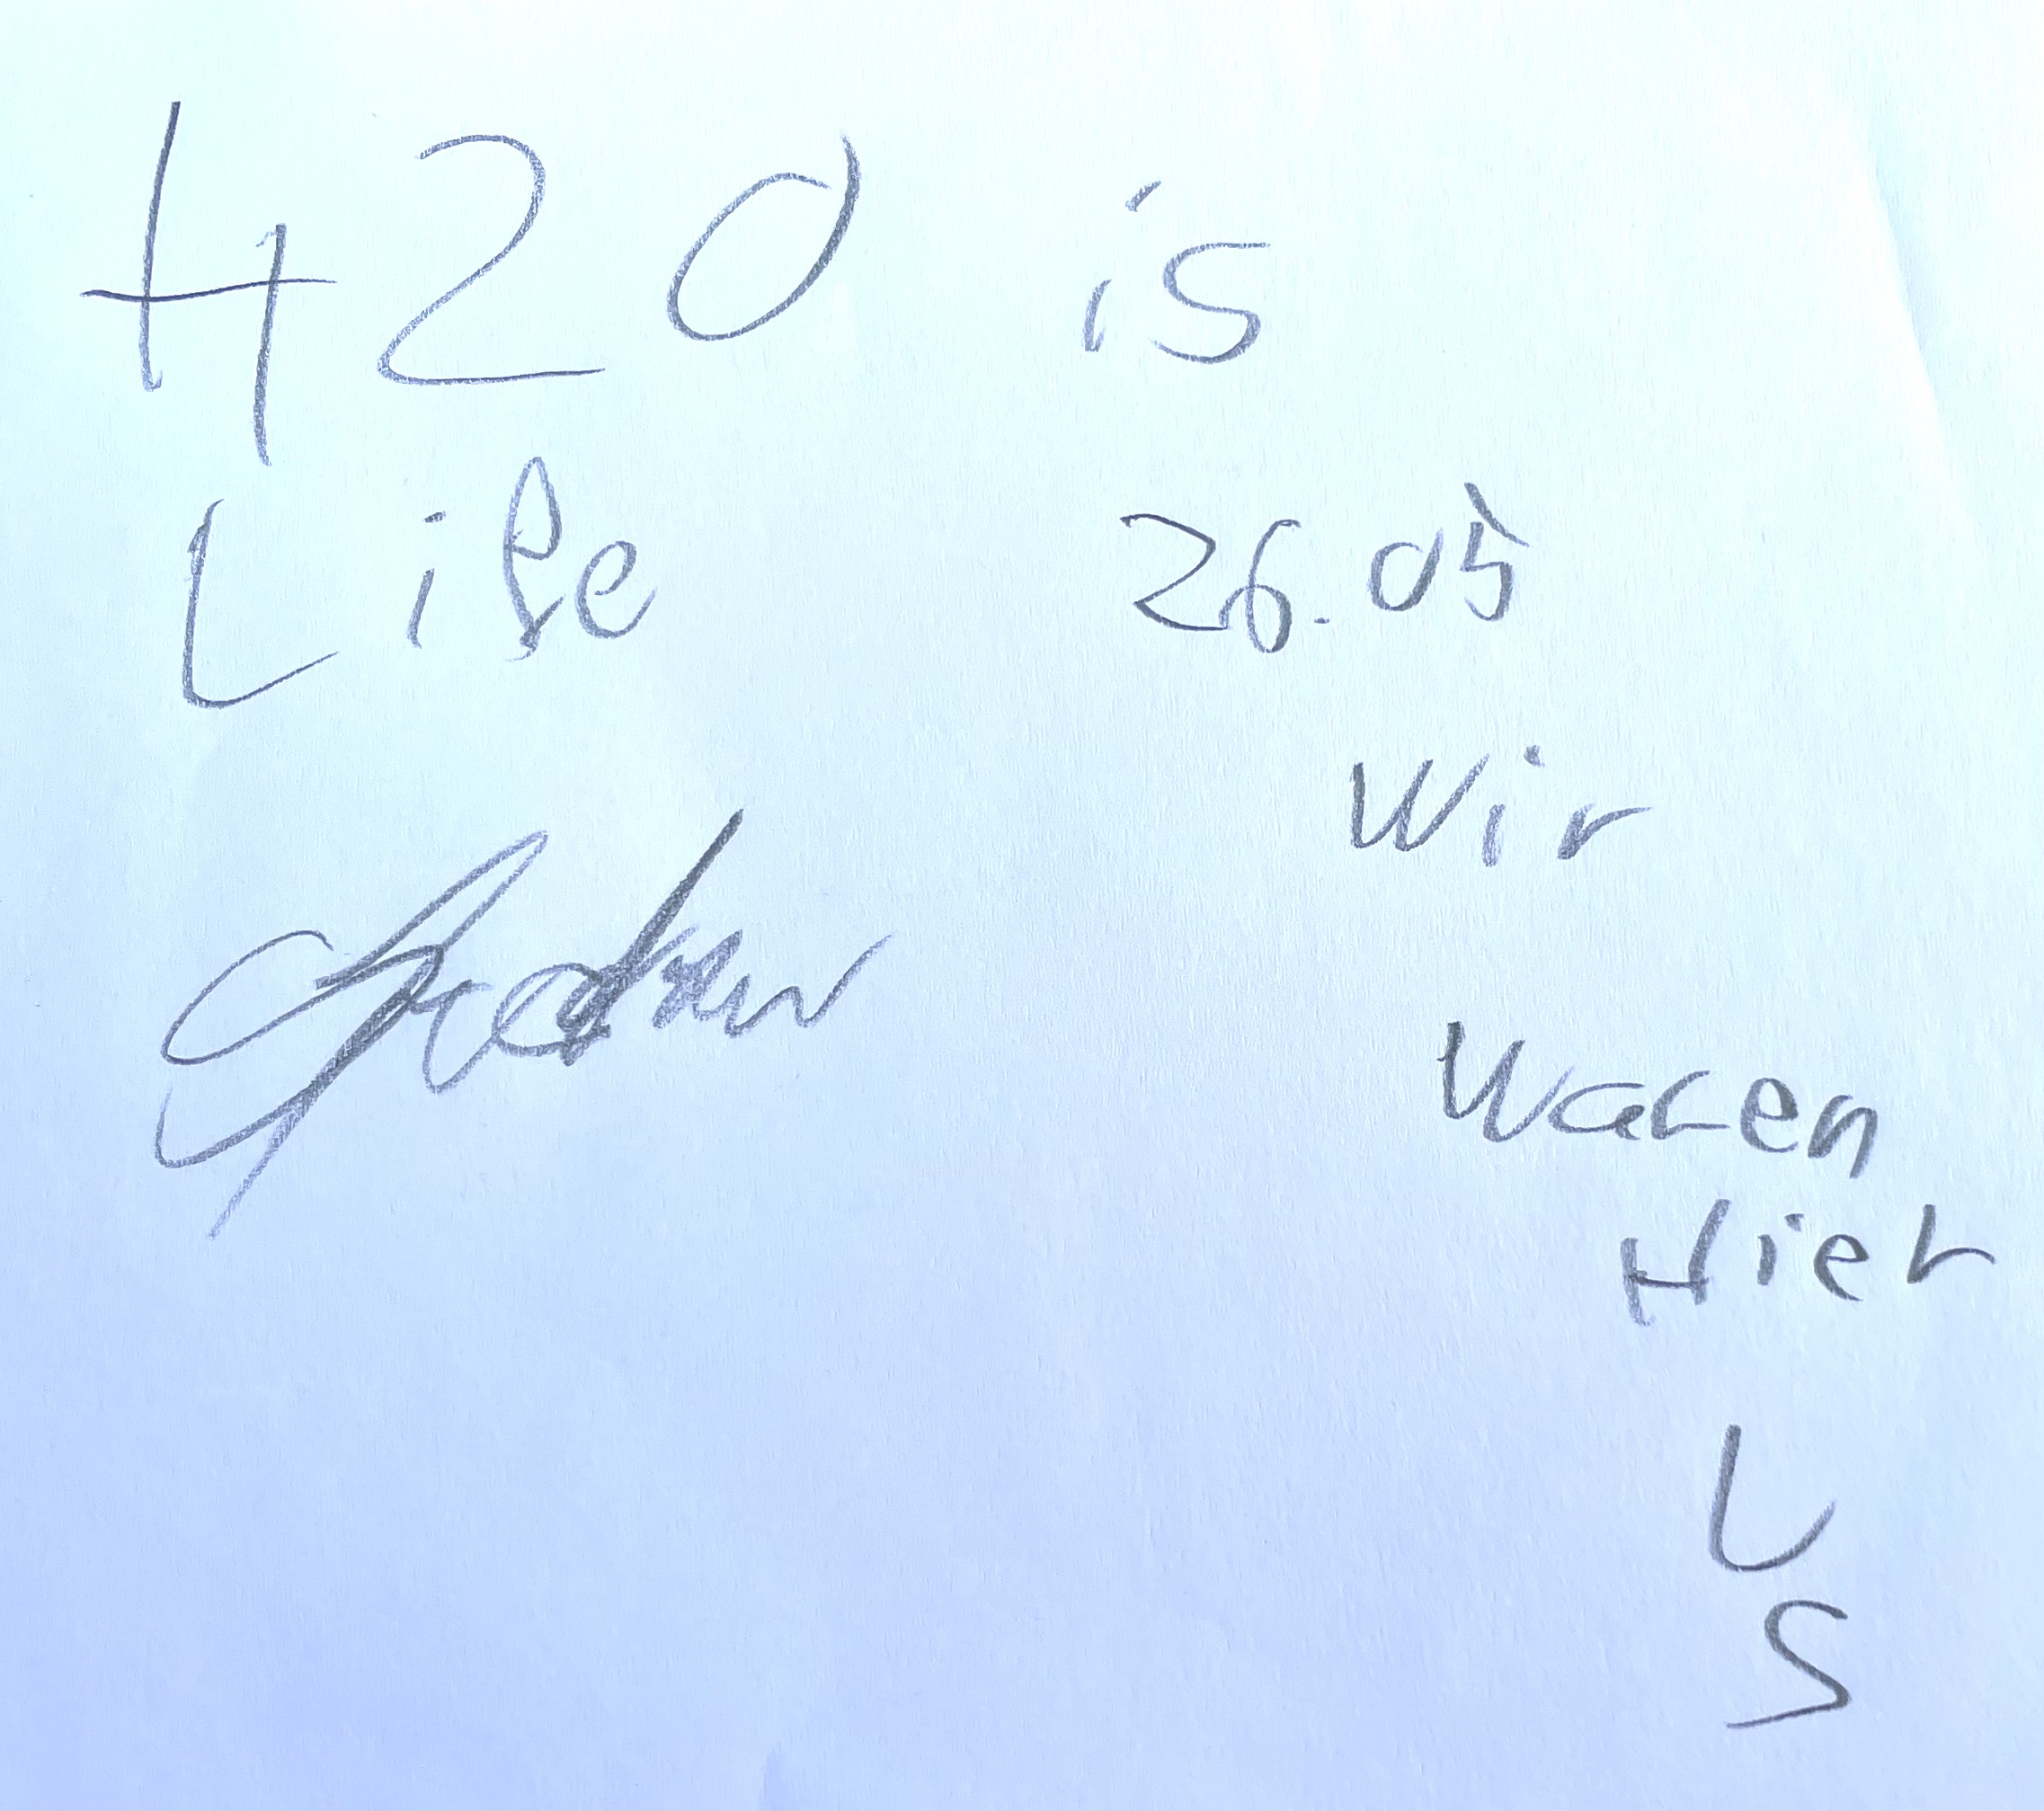 H2O is
Life
26.05
Wir
Waren
Hier
L
S